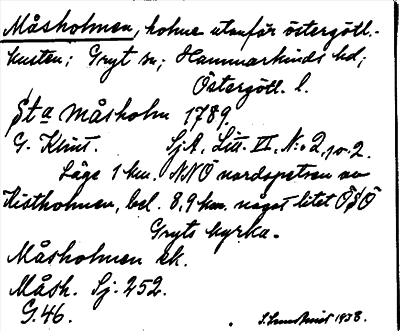 Måsholmen, holme utanför östergötl.-
kusten; Gryt sn; Hammarkinds hd;
Östergötl. l.
Sta måsholm 1789.
G. Klint. SjA. Litt. VI, N:o 2, p. 2.
Läge 1 km. NNÖ nordspetsen av
Kistholmen, bel. 8,9 km. något litet ÖSÖ
Gryts kyrka.
Måsholmen ek.
Måsh. Sj. 252.
G.46.
1938.